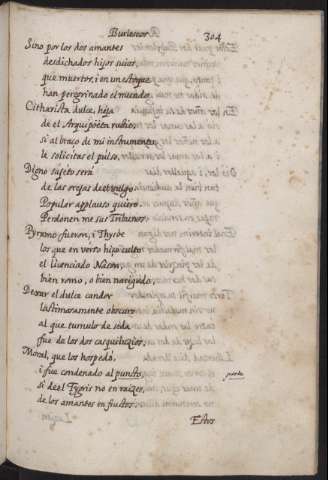 Burlescos
304
Sino por los dos amantes
desdichados hijos suios,
que muertos, i en un estoque
han peregrinado el mundo.
Citharista dulce, hija
de el Archipoëta rubio,
si al braço de mi instrumento
le solicitas el pulso,
Digno sujeto será
de las orejas de el vulgo
Popular applauso quiero
Perdonen me sus Tribunos.
Pyramo fueron, i Thysbe
los que en verso hizo culto
el Licenciado Nason
bien romo, o bien narigudo,
Dexar el dulce candor
lastimosamente obscuro
al que tumulo de seda
fue de los dos casquilucios,
Moral, que los hospedó,
i fue condenado al punto,
si de el Tygris no en raizes,
de los amantes en fructos.
Estos